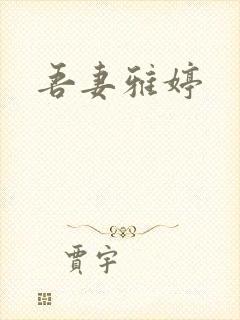 吾妻雅婷
賈宇